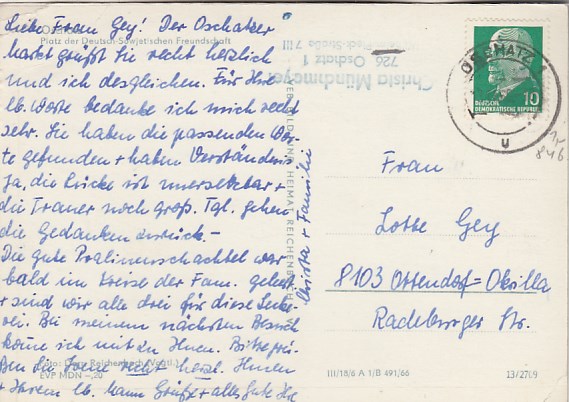 Liebe Frau Gey! Der Oschatzer
Platz der Deutsch-Sowjetischen Freundschaft
Markt grüßt Sie recht herzlich
und ich desgleichen. Für Ihre
lb. Worte bedanke ich mich recht
sehr. Sie haben die passenden Wor-
te gefunden + haben Verständnis
Ja, die Lücke ist unersetzbar +
die Trauer noch groß. Tgl. gehen
die Gedanken zurück. -
Die gute Pralinenschachtel war
bald im Kreise der Fam. geleert
+ sind wir alle drei für diese Lecke-
rei. Bei meinem nächsten Besuch
komme ich mit zu Ihnen. Bitte grü-
ßen Sie
recht herzl. Ihnen
+ Ihrem lb. Mann Grüße + alles Gute Ihre
Christa + Familie
Reichenbach (Vogtl.)
EVP MDN -,20
BILD UND HEIMAT REICHENBACH
Christa Münchmeyer
726 Oschatz 1
Pieck-Straße 7 III
OSCHATZ
u
10
DEUTSCHE
DEMOKRATISCHE REPUBLIK
846
Frau
Lotte Gey
8103 Ottendorf=Okrilla
Radeburger Str.
III/18/6 A 1/B 491/66
13/2709